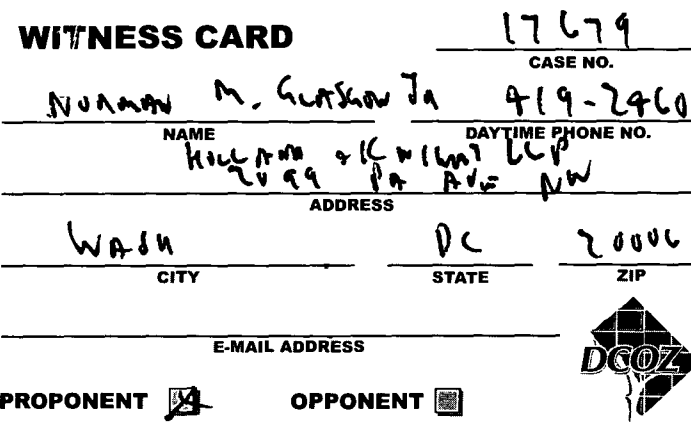 WITNESS CARD
17679
CASE NO.
Norman M. Glasgow Jr
419-2460
NAME
DAYTIME PHONE NO.
Holland & Knight LLP
2099 PA Ave NW
ADDRESS
Wash
DC
20006
CITY
STATE
ZIP
E-MAIL ADDRESS
DCOZ
PROPONENT
OPPONENT